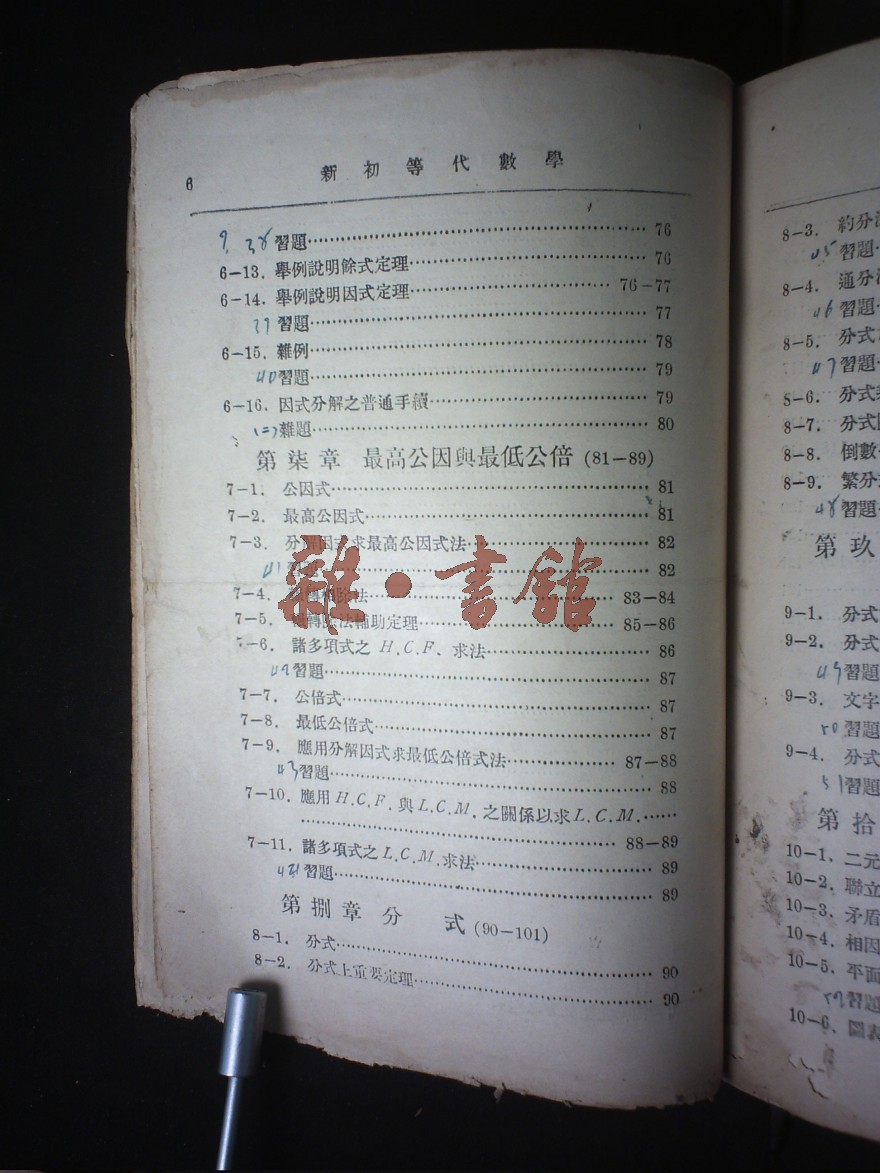 6
新初等代數學
9. 38 習題 76
6-13. 舉例說明餘式定理 76
6-14. 舉例說明因式定理 76-77
39 習題 77
6-15. 雜例 78
40 習題 79
6-16. 因式分解之普通手續 79
(二) 雜題 80
第柒章 最高公因與最低公倍 (81-89)
7-1. 公因式 81
7-2. 最高公因式 81
7-3. 分解因式求最高公因式法 82
41 習題 82
7-4. 輾轉相除法 83-84
7-5. 輾轉除法輔助定理 85-86
7-6. 諸多項式之 H.C.F. 求法 86
42 習題 87
7-7. 公倍式 87
7-8. 最低公倍式 87
7-9. 應用分解因式求最低公倍式法 87-88
43 習題 88
7-10. 應用H.C.F.與L.C.M.之關係以求L.C.M.
88-89
7-11. 諸多項式之L.C.M.求法 89
44 習題 89
第捌章 分式 (90-101)
8-1. 分式 90
8-2. 分式上重要定理 90
雜·書館
8-3. 約分
45 習題
8-4. 通分
46 習題
8-5. 分式
47 習題
8-6. 分式
8-7. 分式
8-8. 倒數
8-9. 繁分
48 習題
第玖
9-1. 分式
9-2. 分式
49 習題
9-3. 文字
50 習題
9-4. 分式
51 習題
第拾
10-1. 二元
10-2. 聯立
10-3. 矛盾
10-4. 相因
10-5. 平面
52 習題
10-6. 圖表